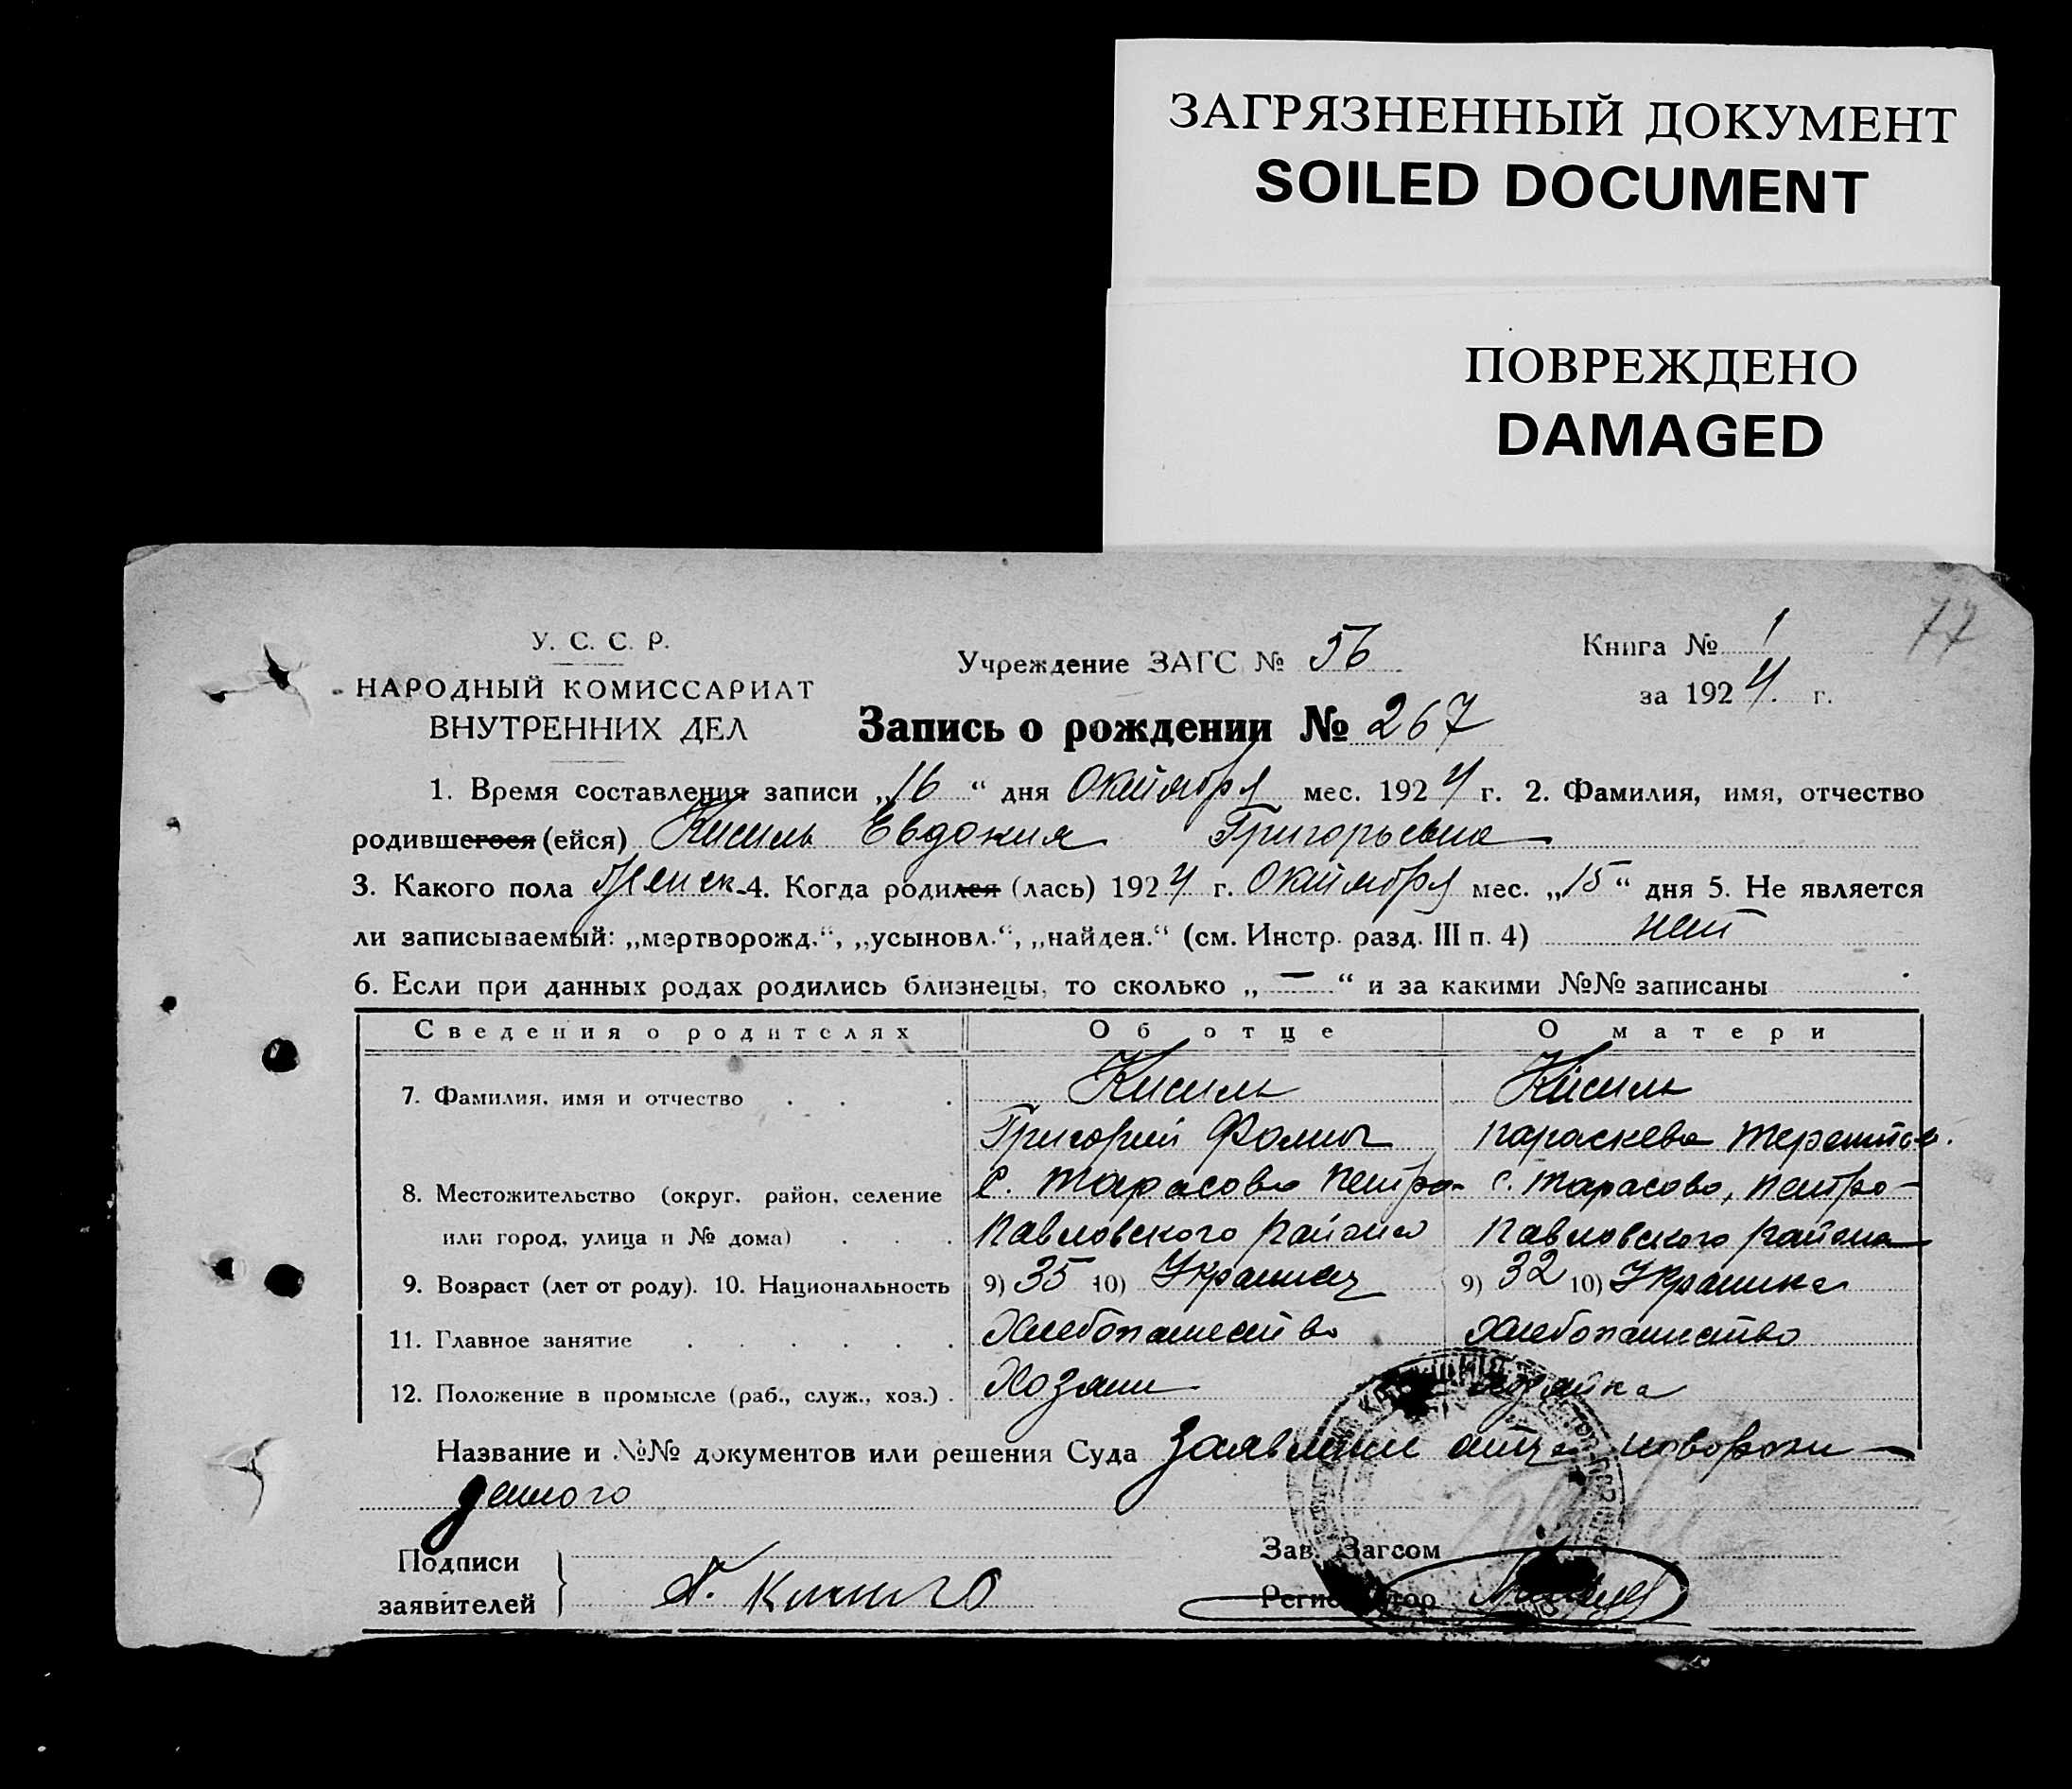 ЗАГРЯЗНЕННЫЙ ДОКУМЕНТ
SOILED DOCUMENT
ПОВРЕЖДЕНО
DAMAGED
77
У. С. С. Р.
НАРОДНЫЙ КОМИССАРИАТ
ВНУТРЕННИХ ДЕЛ
Учреждение ЗАГС № 56
Книга № 1
за 1924 г.
Запись о рождении № 267
1. Время составления записи „16“ дня Октября мес. 1924 г. 2. Фамилия, имя, отчество
родившегося (ейся) Кисиль Евдокия Григорьевна
3. Какого пола женск. 4. Когда родился (лась) 1924 г. Октября мес. „15“ дня 5. Не является
ли записываемый: „мертворожд.“, „усыновл.“, „найден.“ (см. Инстр. разд. III п. 4) нет
6. Если при данных родах родились близнецы, то сколько „—“ и за какими №№ записаны
Сведения о родителях Об отце О матери
7. Фамилия, имя и отчество Кисиль Кисиль
Григорий Фомич Параскева
8. Местожительство (округ, район, селение с. Тарасово Петро- с. Тарасово, Петро-
или город, улица и № дома) Павловского района Павловского района
9. Возраст (лет от роду). 10. Национальность 9) 35 10) Украинец 9) 32 10) Украинка
11. Главное занятие Хлебопашество Хлебопашество
12. Положение в промысле (раб., служ., хоз.) Хозяин хозяйка
Название и №№ документов или решения Суда Заявление отца новорож-
денного
Подписи
заявителей
Зав. Загсом
Регистратор